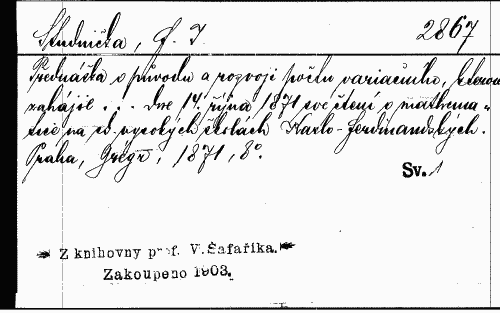 Studnička, F. J. 2867
Přednáška o původu a rozvoji počtu variačního, kterou
zahájil . . . dne 14. října 1871 své čtení o mathema-
tice na c.k. vysokých školách Karlo-Ferdinandských.
Praha, Grégr, 1871, 8°.
Sv. 1
Z knihovny prof. V. Šafaříka.
Zakoupeno 1903.